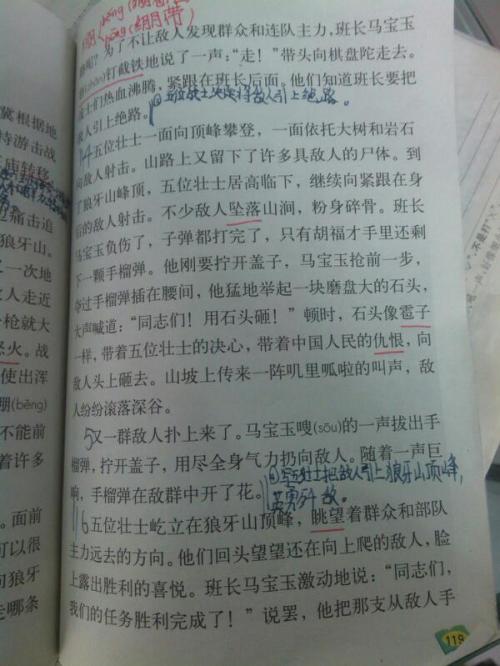 běng(
běng(绷带
为了不让敌人发现群众和连队主力，班长马宝玉
(zhǎn)钉截铁地说了一声：“走！”带头向棋盘陀走去。
士们热血沸腾，紧跟在班长后面。他们知道班长要把
人引上绝路。
敌人引上绝路。
五位壮士一面向顶峰攀登，一面依托大树和岩石
向敌人射击。山路上又留下了许多具敌人的尸体。到
了狼牙山峰顶，五位壮士居高临下，继续向紧跟在身
后的敌人射击。不少敌人坠落山涧，粉身碎骨。班长
马宝玉负伤了，子弹都打完了，只有胡福才手里还剩
下一颗手榴弹。他刚要拧开盖子，马宝玉抢前一步，
夺过手榴弹插在腰间，他猛地举起一块磨盘大的石头，
大声喊道：“同志们！用石头砸！”顿时，石头像雹子
一样，带着五位壮士的决心，带着中国人民的仇恨，向
敌人头上砸去。山坡上传来一阵叽里呱啦的叫声，敌
人纷纷滚落深谷。
5又一群敌人扑上来了。马宝玉嗖(sōu)的一声拔出手
榴弹，拧开盖子，用尽全身气力扔向敌人。随着一声巨
壮士把敌人引上狼牙山顶峰，
响，手榴弹在敌群中开了花。
英勇歼敌。
6五位壮士屹立在狼牙山顶峰，眺望着群众和部队
主力远去的方向。他们回头望望还在向上爬的敌人，脸
上露出胜利的喜悦。班长马宝玉激动地说：“同志们，
我们的任务胜利完成了！”说罢，他把那支从敌人手
119
冀根据地
特游击战
庙转移
痛击追
狼牙山。
一次地
人走近
枪就大
火。战
使出浑
绷(bēng)
不能前
着许多
面前
可以很
向狼牙
走哪条